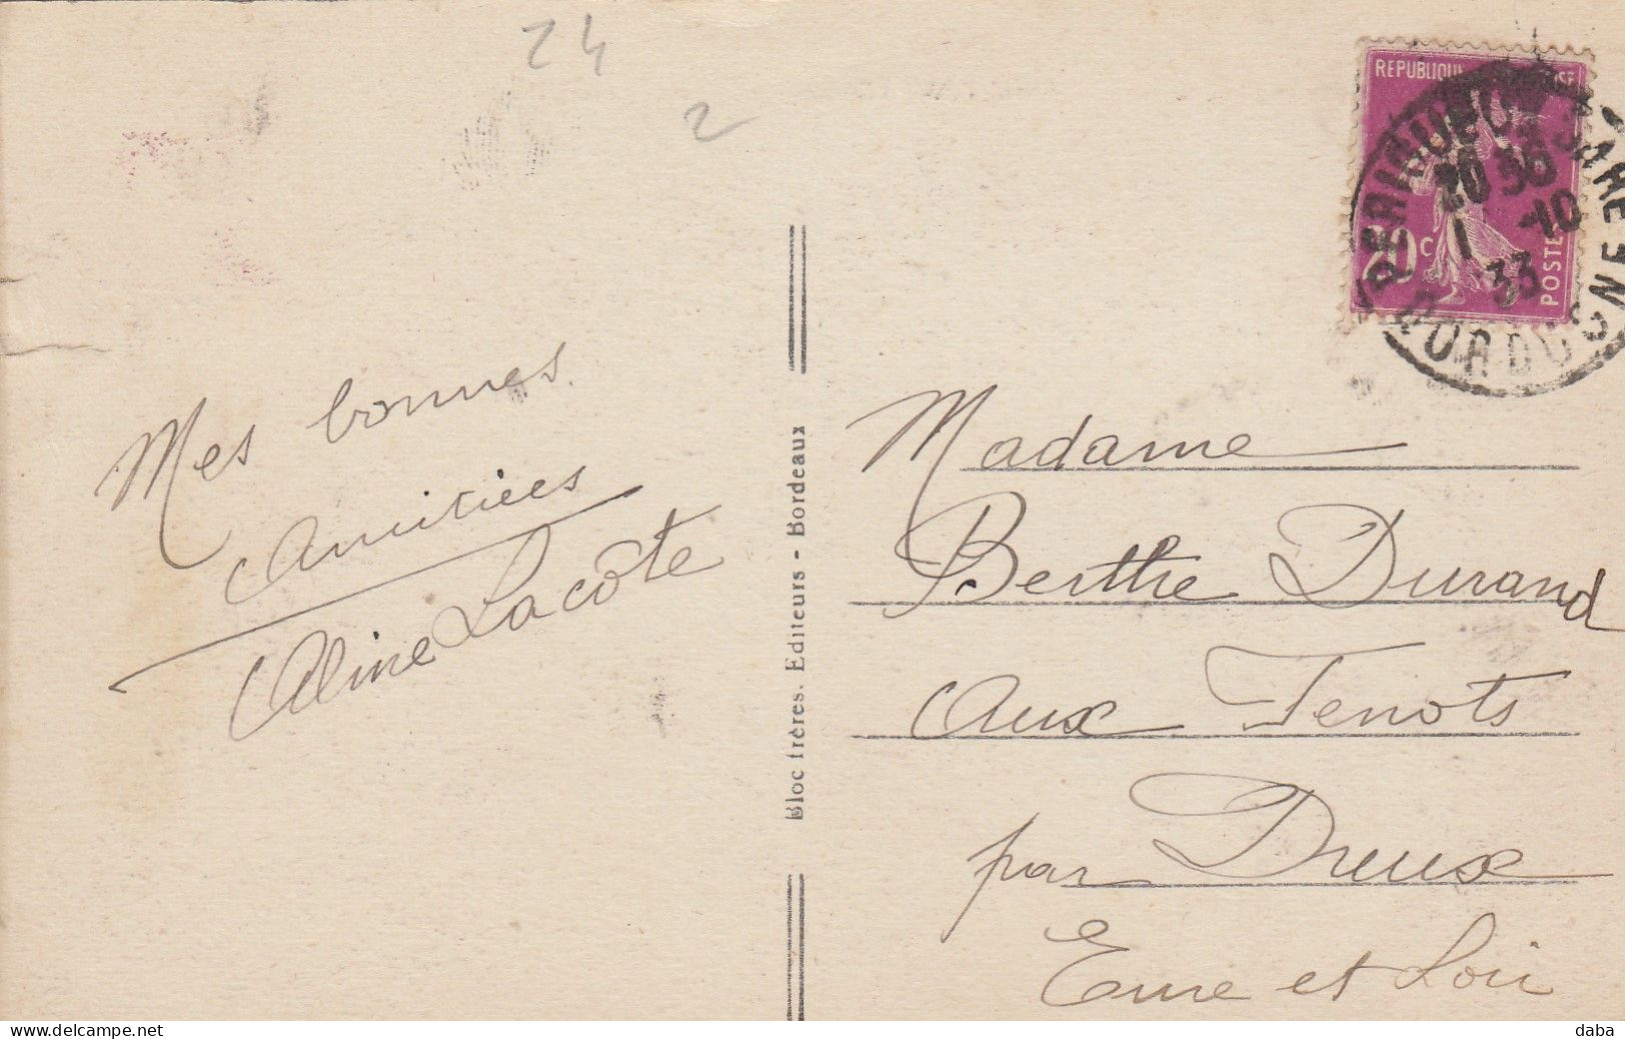 24
2
REPUBLIQUE
20c
POSTES
PERIGUEUX GARE
20 30
1 -10
33
DORDOGNE
Mes bonnes
amitiées
Aline Lacôte
Bloc frères, Editeurs - Bordeaux
Madame
Berthe Durand
aux Tenots
par Dreux
Eure et Loir
www.delcampe.net
daba